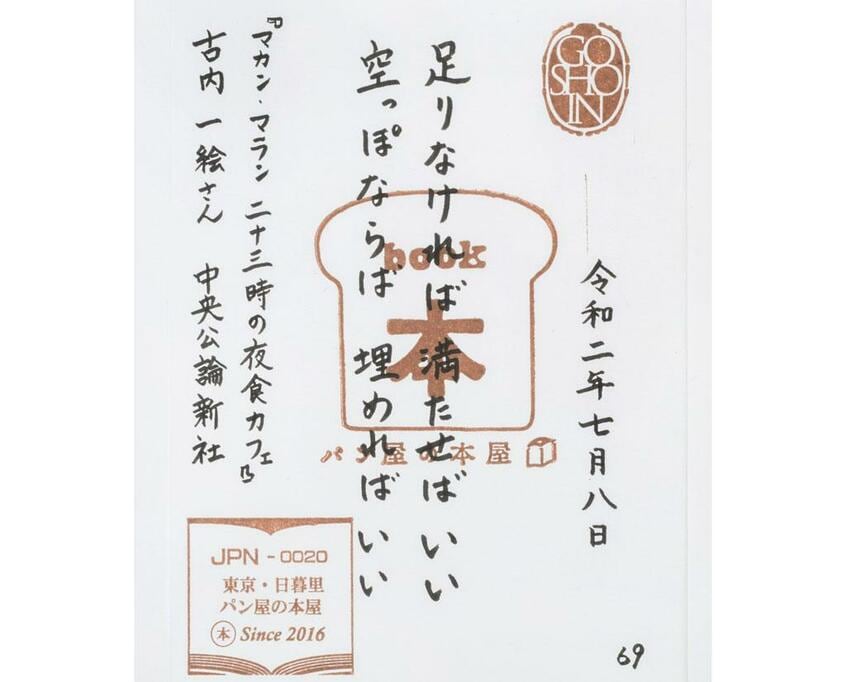 GO
SHO
IN
令和二年七月八日
足りなければ 満たせばいい
空っぽならば 埋めればいい
『マカン・マラン 二十三時の夜食カフェ』
古内一絵さん 中央公論新社
book
本
パン屋の本屋
JPN - 0020
東京・日暮里
パン屋の本屋
本 Since 2016
69